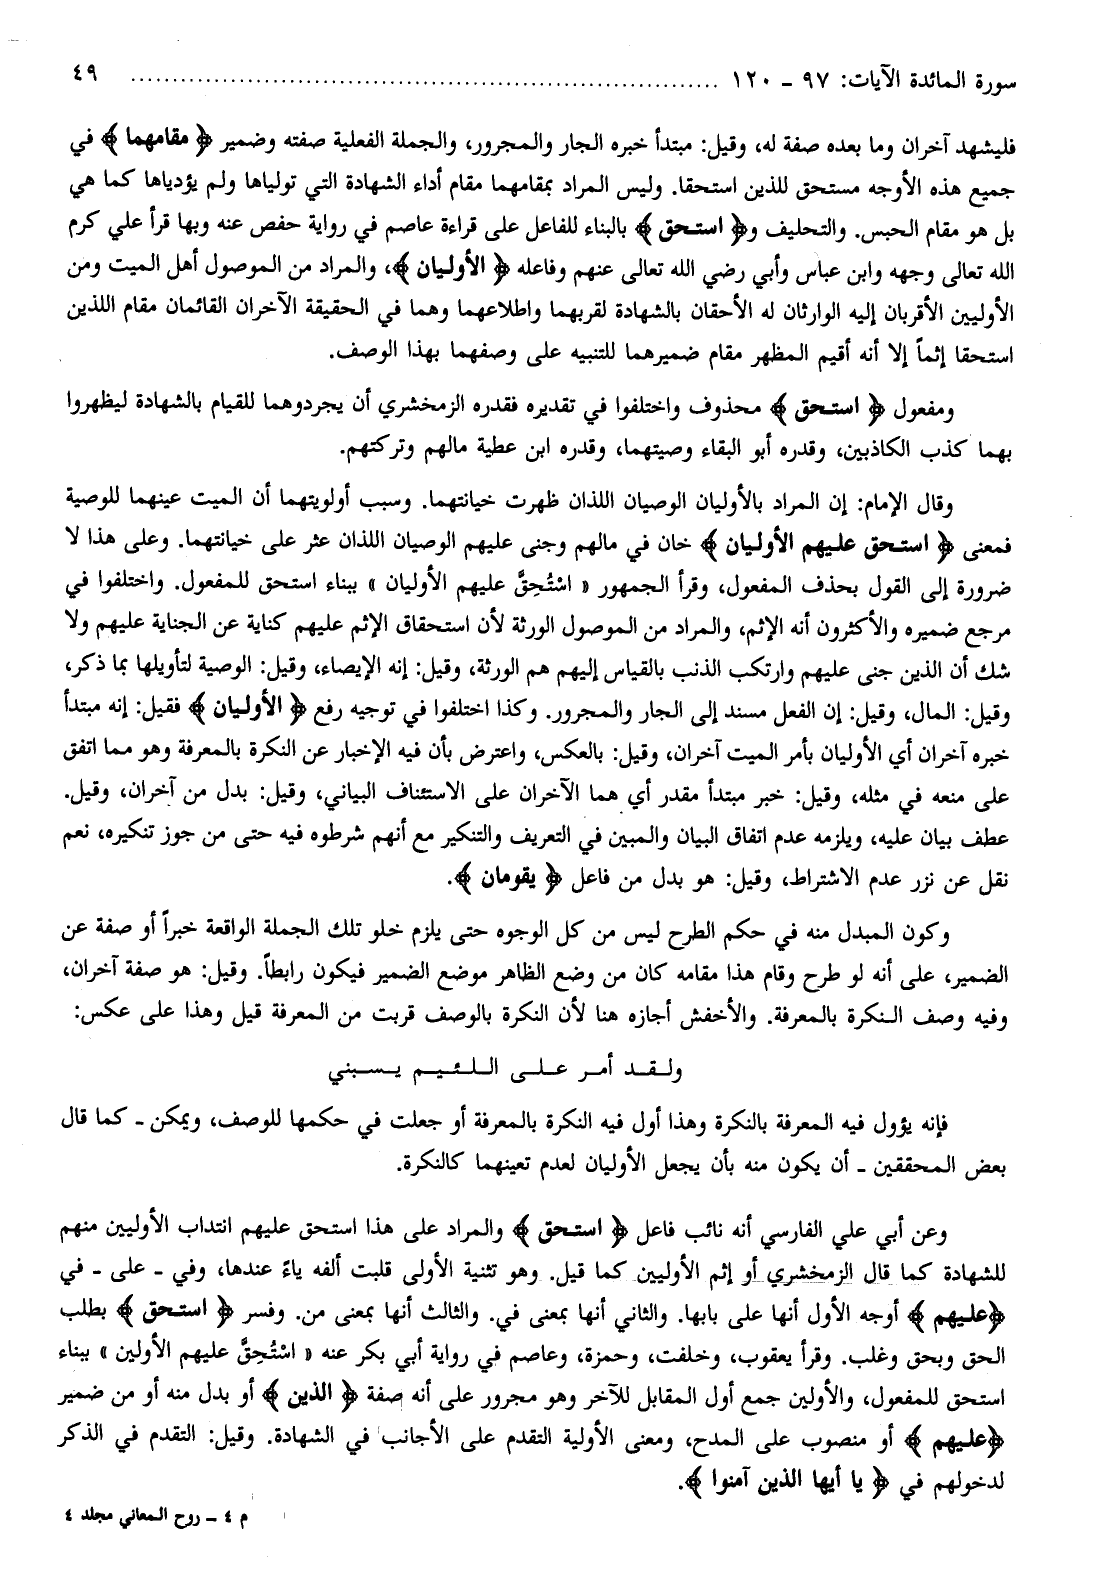 سورة المائدة الآيات: ٩٧ ـ ١٢٠ ........................................ ٤٩
فليشهد آخران وما بعده صفة له، وقيل: مبتدأ خبره الجار والمجرور، والجملة الفعلية صفته وضمير ﴿ مقامهما ﴾ في
جميع هذه الأوجه مستحق للذين استحقا. وليس المراد بمقامهما مقام أداء الشهادة التي تولياها ولم يؤدياها كما هي
بل هو مقام الحبس. والتحليف و﴿ استحق ﴾ بالبناء للفاعل على قراءة عاصم في رواية حفص عنه وبها قرأ علي كرم
الله تعالى وجهه وابن عباس وأبي رضي الله تعالى عنهم وفاعله ﴿ الأوليان ﴾، والمراد من الموصول أهل الميت ومن
الأوليين الأقربان إليه الوارثان له الأحقان بالشهادة لقربهما واطلاعهما وهما في الحقيقة الآخران القائمان مقام اللذين
استحقا إثماً إلا أنه أقيم المظهر مقام ضميرهما للتنبيه على وصفهما بهذا الوصف.
ومفعول ﴿ استحق ﴾ محذوف واختلفوا في تقديره فقدره الزمخشري أن يجردوهما للقيام بالشهادة ليظهروا
بهما كذب الكاذبين، وقدره أبو البقاء وصيتهما، وقدره ابن عطية مالهم وتركتهم.
وقال الإمام: إن المراد بالأوليان الوصيان اللذان ظهرت خيانتهما. وسبب أولويتهما أن الميت عينهما للوصية
فمعنى ﴿ استحق عليهم الأوليان ﴾ خان في مالهم وجنى عليهم الوصيان اللذان عثر على خيانتهما. وعلى هذا لا
ضرورة إلى القول بحذف المفعول، وقرأ الجمهور « اسْتُحِقَّ عليهم الأوليان » ببناء استحق للمفعول. واختلفوا في
مرجع ضميره والأكثرون أنه الإثم، والمراد من الموصول الورثة لأن استحقاق الإثم عليهم كناية عن الجناية عليهم ولا
شك أن الذين جنى عليهم وارتكب الذنب بالقياس إليهم هم الورثة، وقيل: إنه الإيصاء، وقيل: الوصية لتأويلها بما ذكر،
وقيل: المال، وقيل: إن الفعل مسند إلى الجار والمجرور. وكذا اختلفوا في توجيه رفع ﴿ الأوليان ﴾ فقيل: إنه مبتدأ
خبره آخران أي الأوليان بأمر الميت آخران، وقيل: بالعكس، واعترض بأن فيه الإخبار عن النكرة بالمعرفة وهو مما اتفق
على منعه في مثله، وقيل: خبر مبتدأ مقدر أي هما الآخران على الاستئناف البياني، وقيل: بدل من آخران، وقيل.
عطف بيان عليه، ويلزمه عدم اتفاق البيان والمبين في التعريف والتنكير مع أنهم شرطوه فيه حتى من جوز تنكيره، نعم
نقل عن نزر عدم الاشتراط، وقيل: هو بدل من فاعل ﴿ يقومان ﴾.
وكون المبدل منه في حكم الطرح ليس من كل الوجوه حتى يلزم خلو تلك الجملة الواقعة خبراً أو صفة عن
الضمير، على أنه لو طرح وقام هذا مقامه كان من وضع الظاهر موضع الضمير فيكون رابطاً. وقيل: هو صفة آخران،
وفيه وصف النكرة بالمعرفة. والأخفش أجازه هنا لأن النكرة بالوصف قربت من المعرفة قيل وهذا على عكس:
ولقد أمر على اللئيم يسبني
فإنه يؤول فيه المعرفة بالنكرة وهذا أول فيه النكرة بالمعرفة أو جعلت في حكمها للوصف، ويمكن ـ كما قال
بعض المحققين ـ أن يكون منه بأن يجعل الأوليان لعدم تعينهما كالنكرة.
وعن أبي علي الفارسي أنه نائب فاعل ﴿ استحق ﴾ والمراد على هذا استحق عليهم انتداب الأوليين منهم
للشهادة كما قال الزمخشري أو إثم الأوليين كما قيل. وهو تثنية الأولى قلبت ألفه ياءً عندها، وفي ـ على ـ في
﴿عليهم ﴾ أوجه الأول أنها على بابها. والثاني أنها بمعنى في. والثالث أنها بمعنى من. وفسر ﴿ استحق ﴾ بطلب
الحق وبحق وغلب. وقرأ يعقوب، وخلفت، وحمزة، وعاصم في رواية أبي بكر عنه « اسْتُحِقَّ عليهم الأولين » ببناء
استحق للمفعول، والأولين جمع أول المقابل للآخر وهو مجرور على أنه صفة ﴿ الذين ﴾ أو بدل منه أو من ضمير
﴿عليهم ﴾ أو منصوب على المدح، ومعنى الأولية التقدم على الأجانب في الشهادة. وقيل: التقدم في الذكر
لدخولهم في ﴿ يا أيها الذين آمنوا ﴾.
م ٤ ـ روح المعاني مجلد ٤